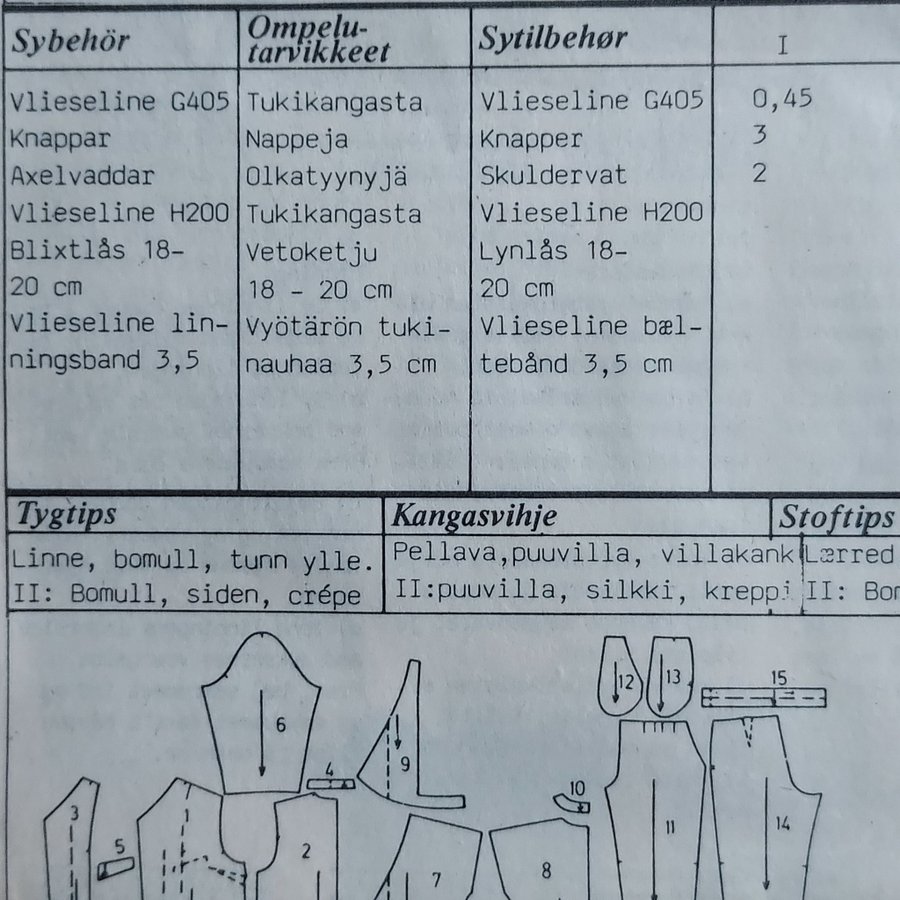 Sybehör
Ompelu-
tarvikkeet
Sytilbehør
I
Vlieseline G405
Tukikangasta
Vlieseline G405
0,45
Knappar
Nappeja
Knapper
3
Axelvaddar
Olkatyynyjä
Skuldervat
2
Vlieseline H200
Tukikangasta
Vlieseline H200
Blixtlås 18-
Vetoketju
Lynlås 18-
20 cm
18 - 20 cm
20 cm
Vlieseline lin-
Vyötärön tuki-
Vlieseline bæl-
ningsband 3,5
nauhaa 3,5 cm
tebånd 3,5 cm
Tygtips
Kangasvihje
Stoftips
Linne, bomull, tunn ylle.
Pellava,puuvilla, villakank
Lærred
II: Bomull, siden, crépe
II:puuvilla, silkki, kreppi
II: Bom
12
13
15
6
9
4
10
3
1
11
14
5
2
7
8